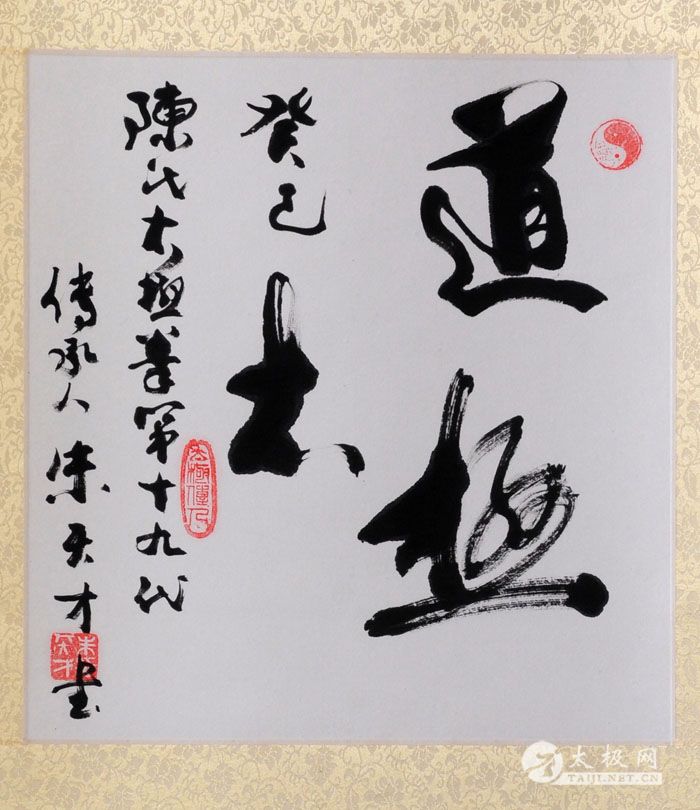 道極
癸巳
陳氏太極拳第十九代
傳承人朱天才書
朱天才
太极网
TAIJI.NET